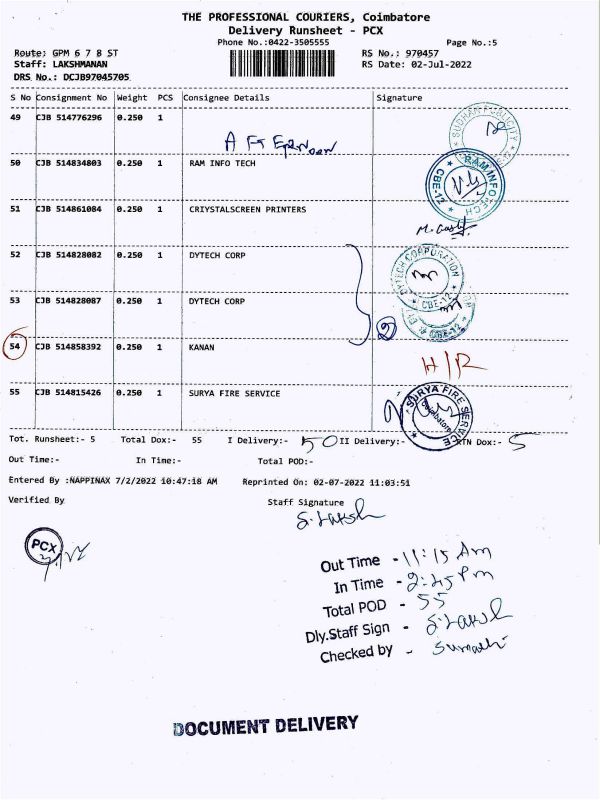 THE PROFESSIONAL COURIERS, Coimbatore
Delivery Runsheet - PCX
Phone No.:0422-3505555 Page No.:5
Route: GPM 6 7 8 ST RS No.: 970457
Staff: LAKSHMANAN RS Date: 02-Jul-2022
DRS No.: DCJB97045705
S No Consignment No Weight PCS Consignee Details Signature
49 CJB 514776296 0.250 1
SUDHAN PUBLICITY
50 CJB 514834803 0.250 1 RAM INFO TECH
RAM INFO TECH
CBE-12
51 CJB 514861084 0.250 1 CRIYSTALSCREEN PRINTERS
52 CJB 514828082 0.250 1 DYTECH CORP
DYTECH CORPORATION
CBE-12
53 CJB 514828087 0.250 1 DYTECH CORP
CBE-12
54 CJB 514858392 0.250 1 KANAN
H/R
55 CJB 514815426 0.250 1 SURYA FIRE SERVICE
SURYA FIRE SERVICE
Coimbatore
Tot. Runsheet:- 5 Total Dox:- 55 I Delivery:- 50 II Delivery:- RTN Dox:- 5
Out Time:- In Time:- Total POD:-
Entered By :NAPPINAX 7/2/2022 10:47:18 AM Reprinted On: 02-07-2022 11:03:51
Verified By Staff Signature
S. Laksh
PCX
Out Time - 11:15 Am
In Time - 2:45 Pm
Total POD - 55
Dly.Staff Sign - S. Laksh
Checked by - Sumathi
DOCUMENT DELIVERY